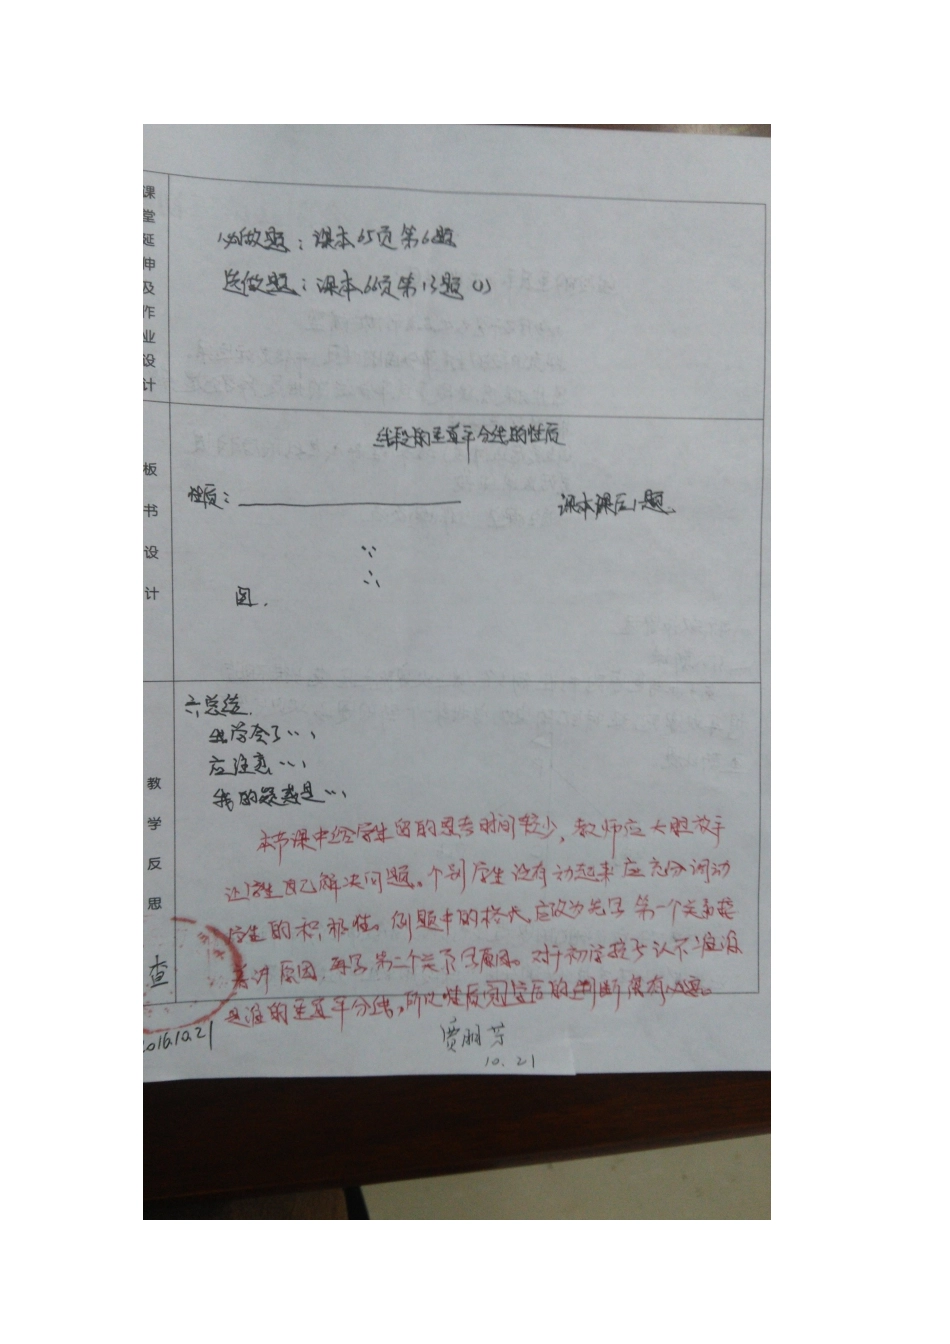 课堂延伸及作业设计
必做题：课本65页第6题
选做题：课本66页第13题(1)
板书设计
线段的垂直平分线的性质
性质：
课本课后1题
∵
∴
图.
教学反思
六、总结.
我学会了…
应注意…
我的疑惑是…
本节课中给学生留的思考时间较少，教师应大胆放手
让学生自己解决问题。个别学生没有动起来应充分调动
学生的积极性。例题中的格式应改为先写第一个关系接
着讲原因，再写第二个关系写原因。对于初学孩子认不准谁
是谁的垂直平分线，所以性质完学后的判断很有必要。
查
2016.10.21
10.21